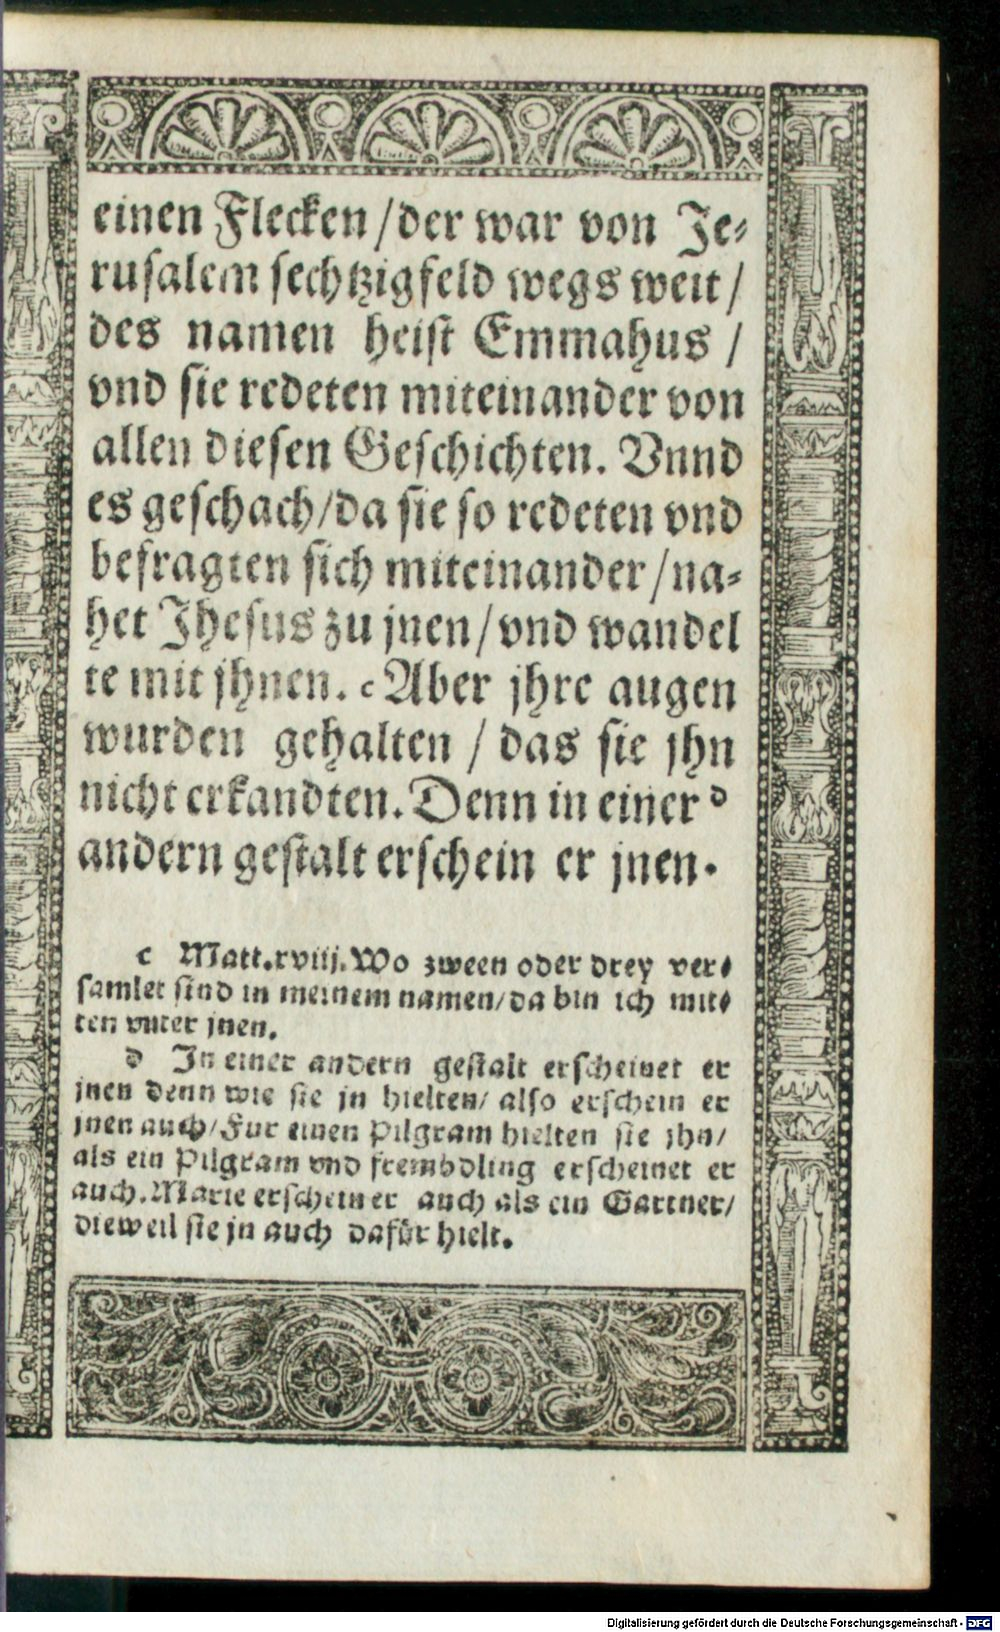 einen Flecken / der war von Je⸗
rusalem sechtzigfeld wegs weit /
des namen heist Emmahus /
vnd sie redeten miteinander von
allen diesen Geschichten. Vnnd
es geschach / da sie so redeten vnd
befragten sich miteinander / na⸗
het Jhesus zu jnen / vnd wandel
te mit jhnen. c Aber jhre augen
wurden gehalten / das sie jhn
nicht erkandten. Denn in einer d
andern gestalt erschein er jnen.
c Matt. xviij. Wo zween oder drey ver⸗
samlet sind in meinem namen / da bin ich mit⸗
ten vnter jnen.
d In einer andern gestalt erscheinet er
jnen denn wie sie jn hielten / also erschein er
jnen auch / Fur einen Pilgram hielten sie jhn /
als ein Pilgram vnd frembdling erscheinet er
auch. Marie erschein er auch als ein Gartner /
dieweil sie jn auch dafür hielt.
Digitalisierung gefördert durch die Deutsche Forschungsgemeinschaft - DFG